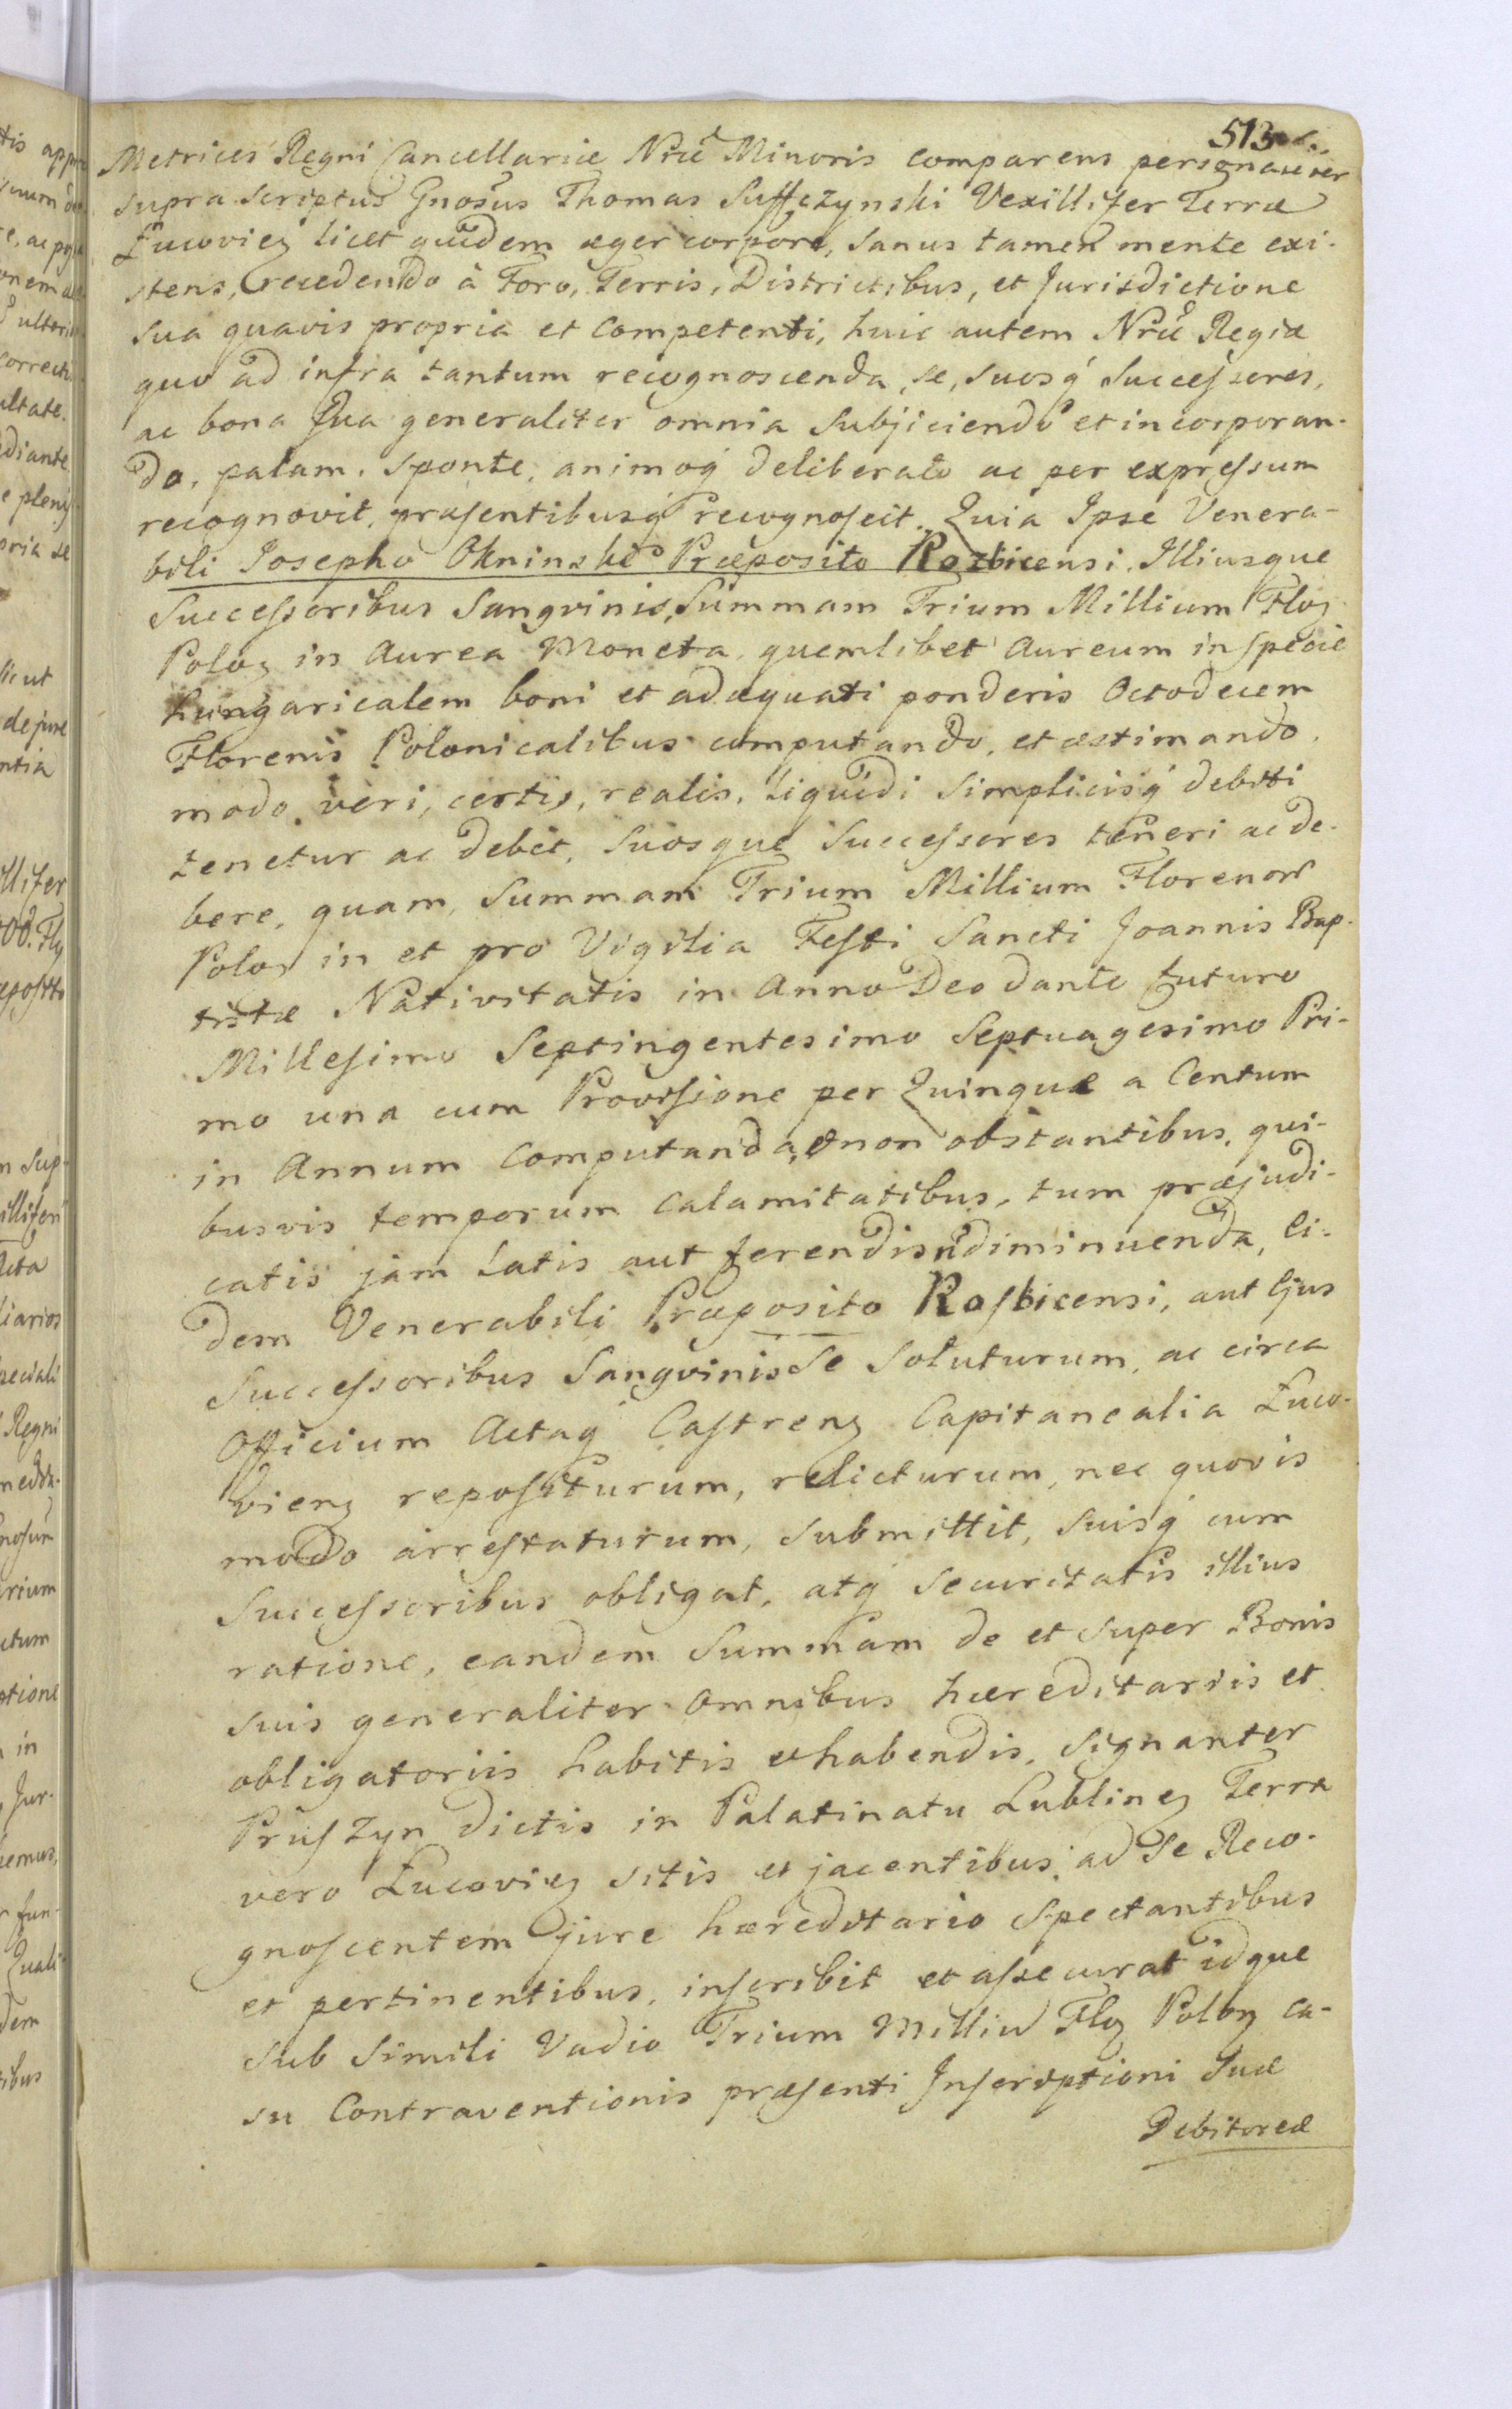 513
Metrices Regni Cancellariæ Nræ Minoris comparens personaliter
supra scriptus Gnosus Thomas Suffczynski Vexillifer Terræ
Łucovien licet quidem æger corpore, sanus tamen mente exi-
stens, recedendo à Foro, Terris, Districtibus, et Jurisdictione
sua quavis propria et competenti, huic autem Nræ Regiæ
quo ad infra tantum recognoscenda, se, suosq Successores,
ac bona sua generaliter omnia subjiciendo et incorporan-
do, palam, sponte, animoq deliberato ac per expressum
recognovit, præsentibusq recognoscit. Quia Ipse Venera-
bili Josepho Okninski Præposito Rozbicensi, Illiusque
Successoribus Sangvinis, Summam Trium Millium Flor
Polon in Aurea Moneta, quemlibet Aureum in specie
hungaricalem boni et adæquati ponderis Octodecem
Florenis Polonicalibus computando, et æstimando,
modo veri, certi, realis, liquidi simplicisq debiti
tenetur ac debet, suosque Successores teneri ac de-
bere, quam Summam Trium Millium Florenor
Polon in et pro Vigilia Festi Sancti Joannis Bap-
tistæ Nativitatis in Anno Deo dante futuro
Millesimo Septingentesimo Septuagesimo Pri-
mo una cum Provisione per Quinque a Centum
in Annum computanda, non obstantibus, qui-
busvis temporum calamitatibus, tum præjudi-
catis jam latis aut ferendis diminuenda, ei-
dem Venerabili Præposito Rosbicensi, aut Ejus
Successoribus Sangvinis se soluturum, ac circa
Officium Actaq Castren Capitanealia Łuco-
vien repositurum, relicturum, nec quovis
modo arrestaturum, submittit, suisq cum
Successoribus obligat, atq securitatis illius
ratione, eandem Summam de et super Bonis
suis generaliter omnibus hæreditariis et
obligatoriis habitis et habendis, signanter
Pruszyn dictis in Palatinatu Lublinen Terra
vero Łucovien sitis et jacentibus, ad se Reco-
gnoscentem jure hæreditario spectantibus
et pertinentibus, inscribit et assecurat idque
sub simili Vadio Trium Milliu Flor Polon ca-
su Contraventionis præsenti Inscriptioni suæ
Debitoreæ